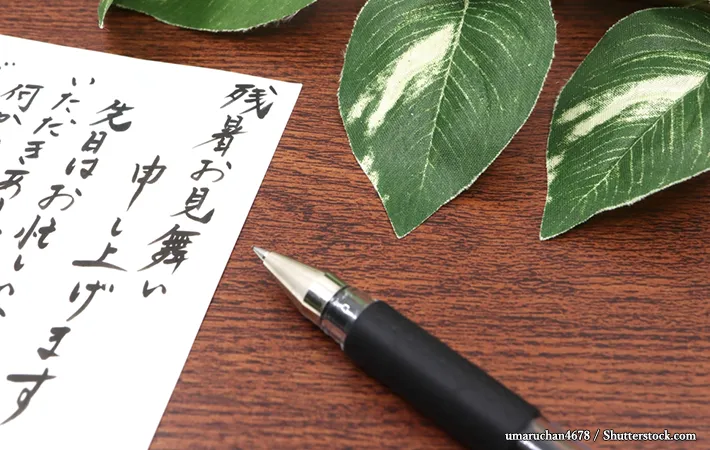 残暑お見舞い
申し上げます
先日はお忙しい
いただきあり
何か
umaruchan4678 / Shutterstock.com